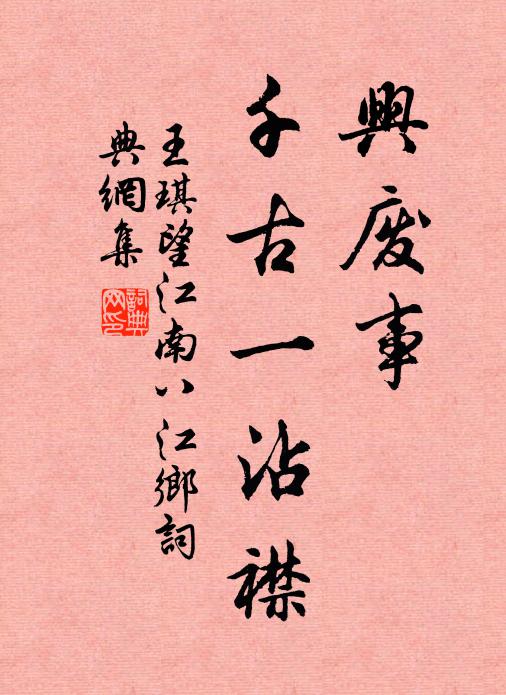 興废事
千古一沾襟
王琪望江南八江鄉詞
典網集
詞典网印